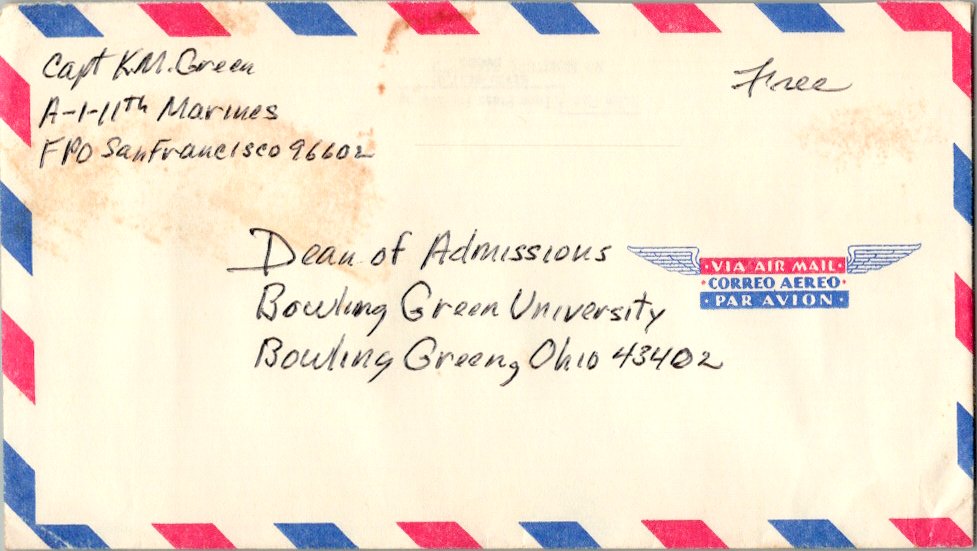 Capt K.M. Green
A-1-11th Marines
FPO San Francisco 96602
Free
Dean of Admissions
Bowling Green University
Bowling Green, Ohio 43402
·VIA AIR MAIL·
·CORREO AEREO·
·PAR AVION·